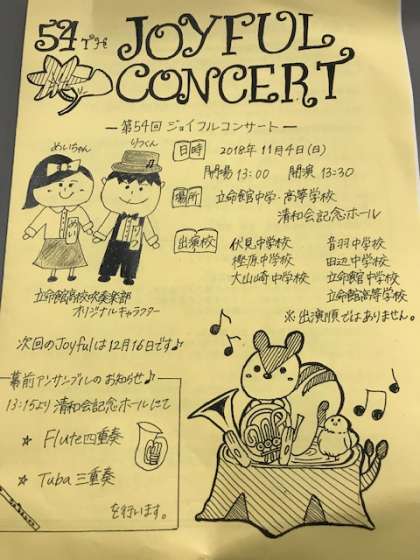 54
JOYFUL
CONCERT
―第54回 ジョイフルコンサート―
めいちゃん
りつくん
日時 2018年 11月4日(日)
開場 13:00 開演 13:30
場所 立命館中学・高等学校
清和会記念ホール
出演校 伏見中学校 音羽中学校
樫原中学校 田辺中学校
大山崎中学校 立命館中学校
立命館高等学校
※出演順ではありません。
立命館高校吹奏楽部
オリジナルキャラクター
次回のJoyfulは12月16日です♪
幕前アンサンブルのお知らせ♪
13:15より清和会記念ホールにて
☆ Flute四重奏
☆ Tuba 三重奏
を行います。